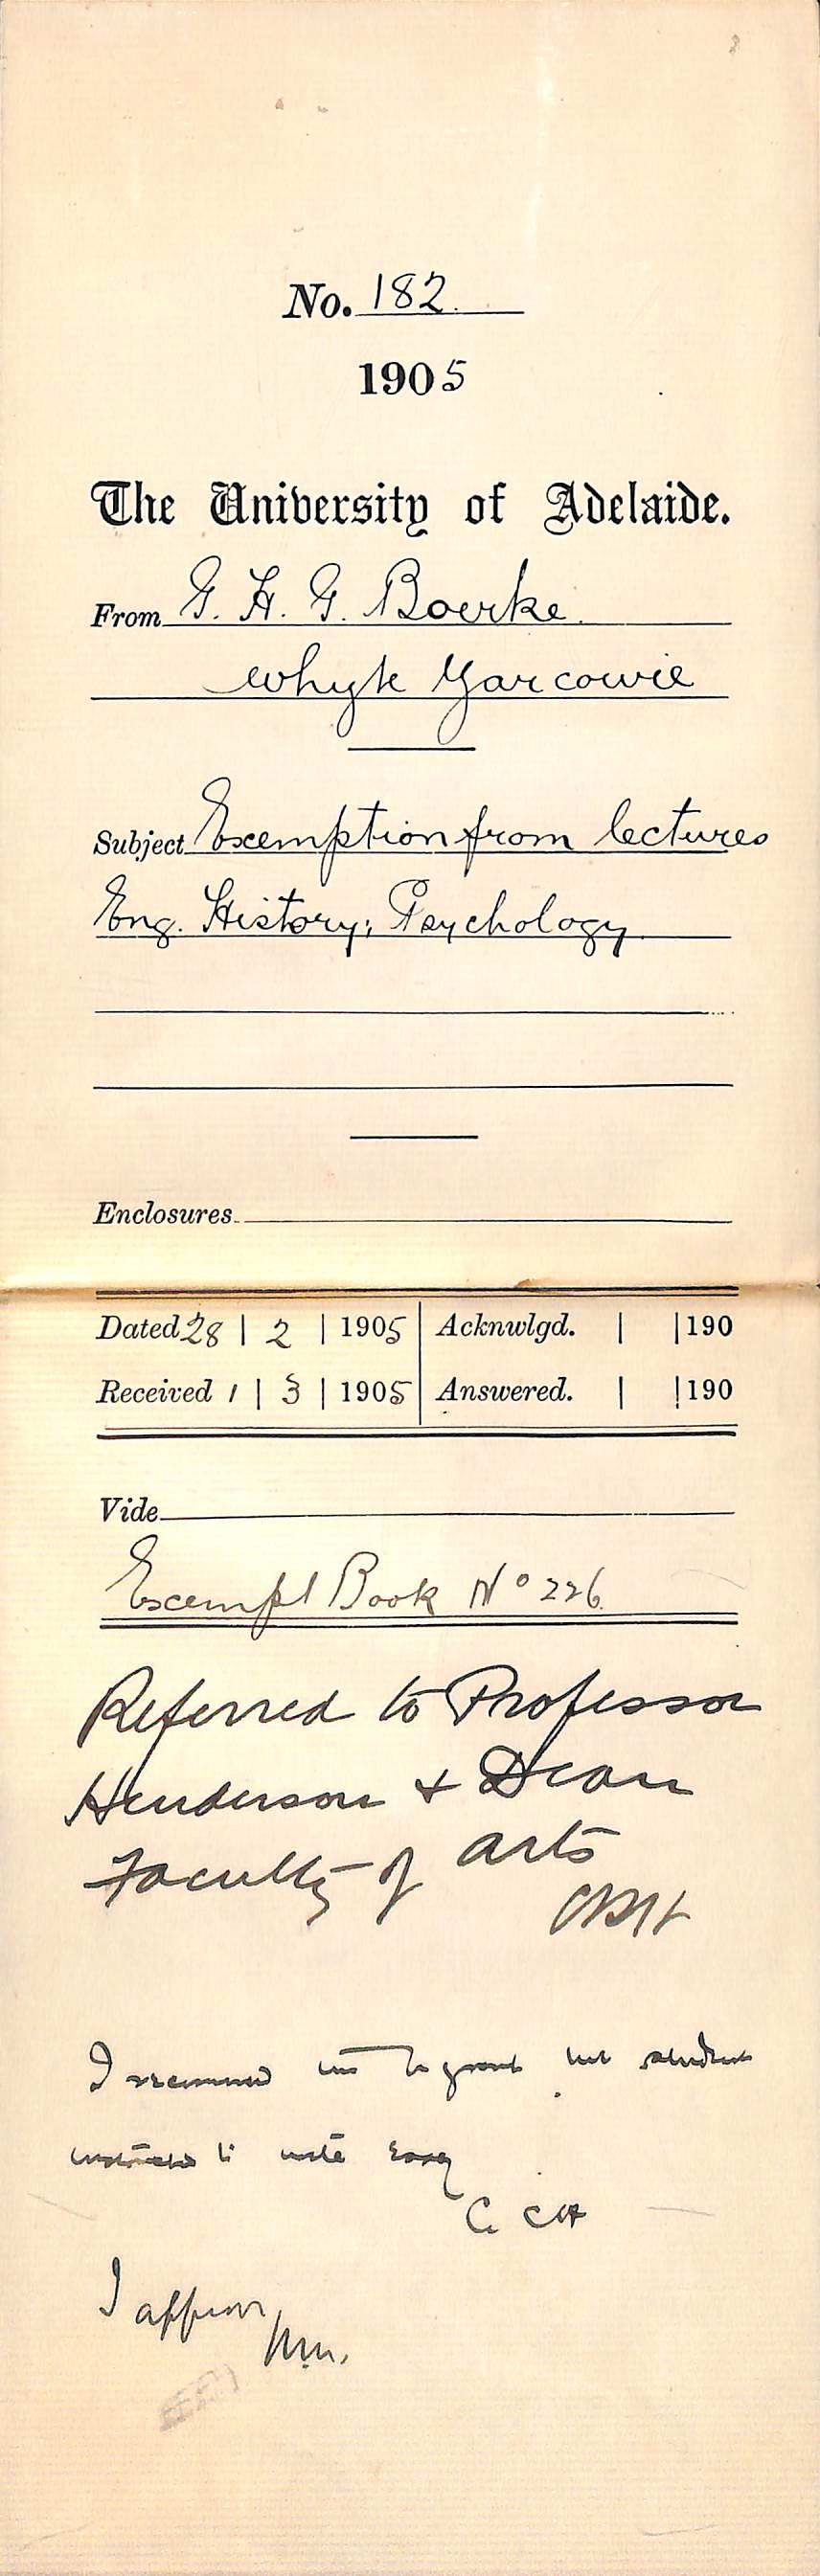 No. 182.
1905
The University of Adelaide.
From G. H. G. Boerke
Whyte Yarcowie
Subject Exemption from lectures
Eng. History; Psychology
Enclosures
Dated 28 | 2 | 1905 Acknwlgd. | | 190
Received 1 | 3 | 1905 Answered. | | 190
Vide
Exempt Book No 226.
Referred to Professor
Henderson & Dean
Faculty of Arts
I recommend to grant but student
to write essay
I approve